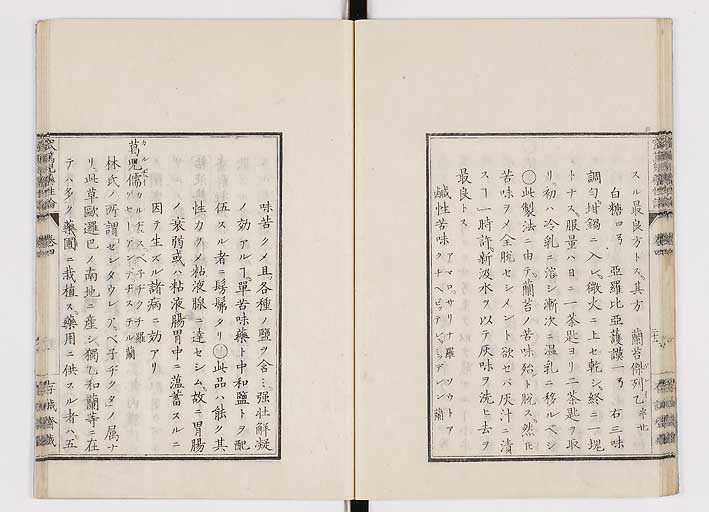 スル最良方トス其方 蘭苔傑列乙
白糖四弓 亞羅比亞護謨一弓 右三味
調勻坩鍋ニ入レ微火ニ上セ乾シ終ニ一塊
トナス服量ハ日ニ一茶匙ヨリ二茶匙ヲ取
リ初ハ冷乳ニ溶シ漸次ニ温乳ニ移ルベシ
〇此製法ニ由テ蘭苔ノ苦味殆ト脱ス然㆑𪜈
苦味ヲメ全脱セシメント欲セバ灰汁ニ漬
スヿ一時許新汲水ヲ以テ灰味ヲ洗ヒ去ヲ
最良トス
鹹性苦味 アマロサリナ羅 ツウトアクチヘビッテレン蘭
味苦クメ且各種ノ鹽ヲ含ミ強壮解凝
ノ効アルヿ單苦味藥ト中和鹽トヲ配
伍スル者ニ髣髴タリ〇此品ハ能ク其
性力クメ粘液腺ニ達セシム故ニ胃腸
ノ衰弱或ハ粘液腸胃中ニ蓄スルニ
因テ生ズル諸病ニ効アリ
葛兒儒 カルドース ベネヂクチ羅 セーアンデヂステル蘭
林氏ノ所謂センタウレア ベ子ヂクタノ属ナ
リ此草歐邏巴ノ南地ニ産シ獨乙和蘭等ニ在
テハ多ク藥園ニ栽植ス藥用ニ供スル者ハ五
卷四
存誠齋藏